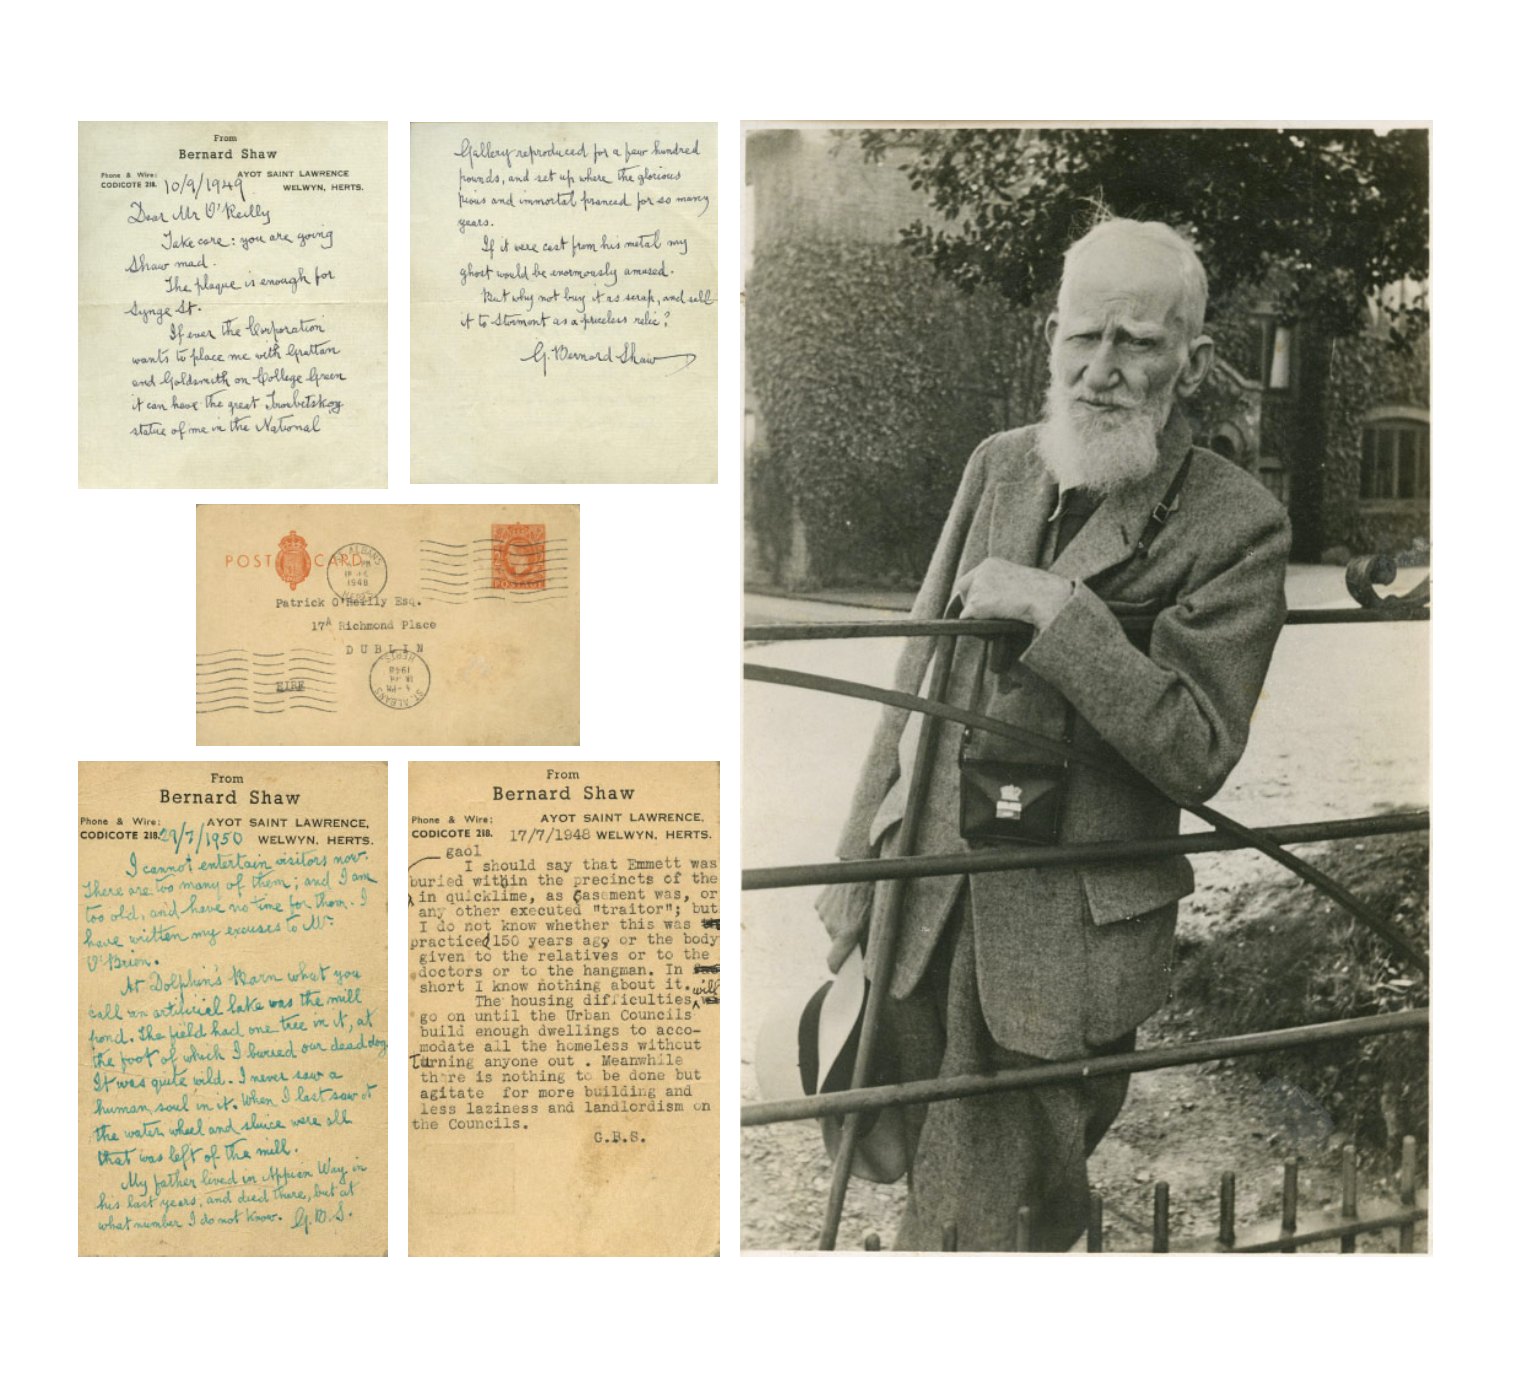 From
Bernard Shaw
Phone & Wire:
CODICOTE 218.
AYOT SAINT LAWRENCE
WELWYN, HERTS.
10/9/1949
Dear Mr O'Reilly
Take care: you are going
Shaw mad.
The plaque is enough for
Synge St.
If ever the Corporation
wants to place me with Grattan
and Goldsmith on College Green
it can have the great Troubetskoy
statue of me in the National
Gallery reproduced for a few hundred
pounds, and set up where the glorious
pious and immortal pranced for so many
years.
If it were cast from his metal my
ghost would be enormously amused.
But why not buy it as scrap, and sell
it to Stormont as a priceless relic?
G. Bernard Shaw
POST CARD
ST. ALBANS
1948
HERTS
POSTAGE
Patrick O'Reilly Esq.
17A Richmond Place
DUBLIN
EIRE
ST. ALBANS
4 - PM
18 JY
1948
HERTS
From
Bernard Shaw
Phone & Wire:
CODICOTE 218.
AYOT SAINT LAWRENCE,
WELWYN, HERTS.
29/7/1950
I cannot entertain visitors now.
There are too many of them; and I am
too old, and have no time for them. I
have written my excuses to Mr
O'Brien.
At Dolphin's Barn what you
call an artificial lake was the mill
pond. The field had one tree in it, at
the foot of which I buried our dead dog.
It was quite wild. I never saw a
human soul in it. When I last saw it
the water wheel and sluice were all
that was left of the mill.
My father lived in Appian Way in
his last years, and died there, but at
what number I do not know. G.B.S.
From
Bernard Shaw
Phone & Wire:
CODICOTE 218.
AYOT SAINT LAWRENCE,
17/7/1948 WELWYN, HERTS.
gaol
I should say that Emmett was
buried within the precincts of the
in quicklime, as Casement was, or
any other executed "traitor"; but
I do not know whether this was
practiced 150 years ago or the body
given to the relatives or to the
doctors or to the hangman. In
short I know nothing about it.
The housing difficulties will
go on until the Urban Councils
build enough dwellings to acco-
modate all the homeless without
turning anyone out . Meanwhile
there is nothing to be done but
agitate for more building and
less laziness and landlordism on
the Councils.
G.B.S.